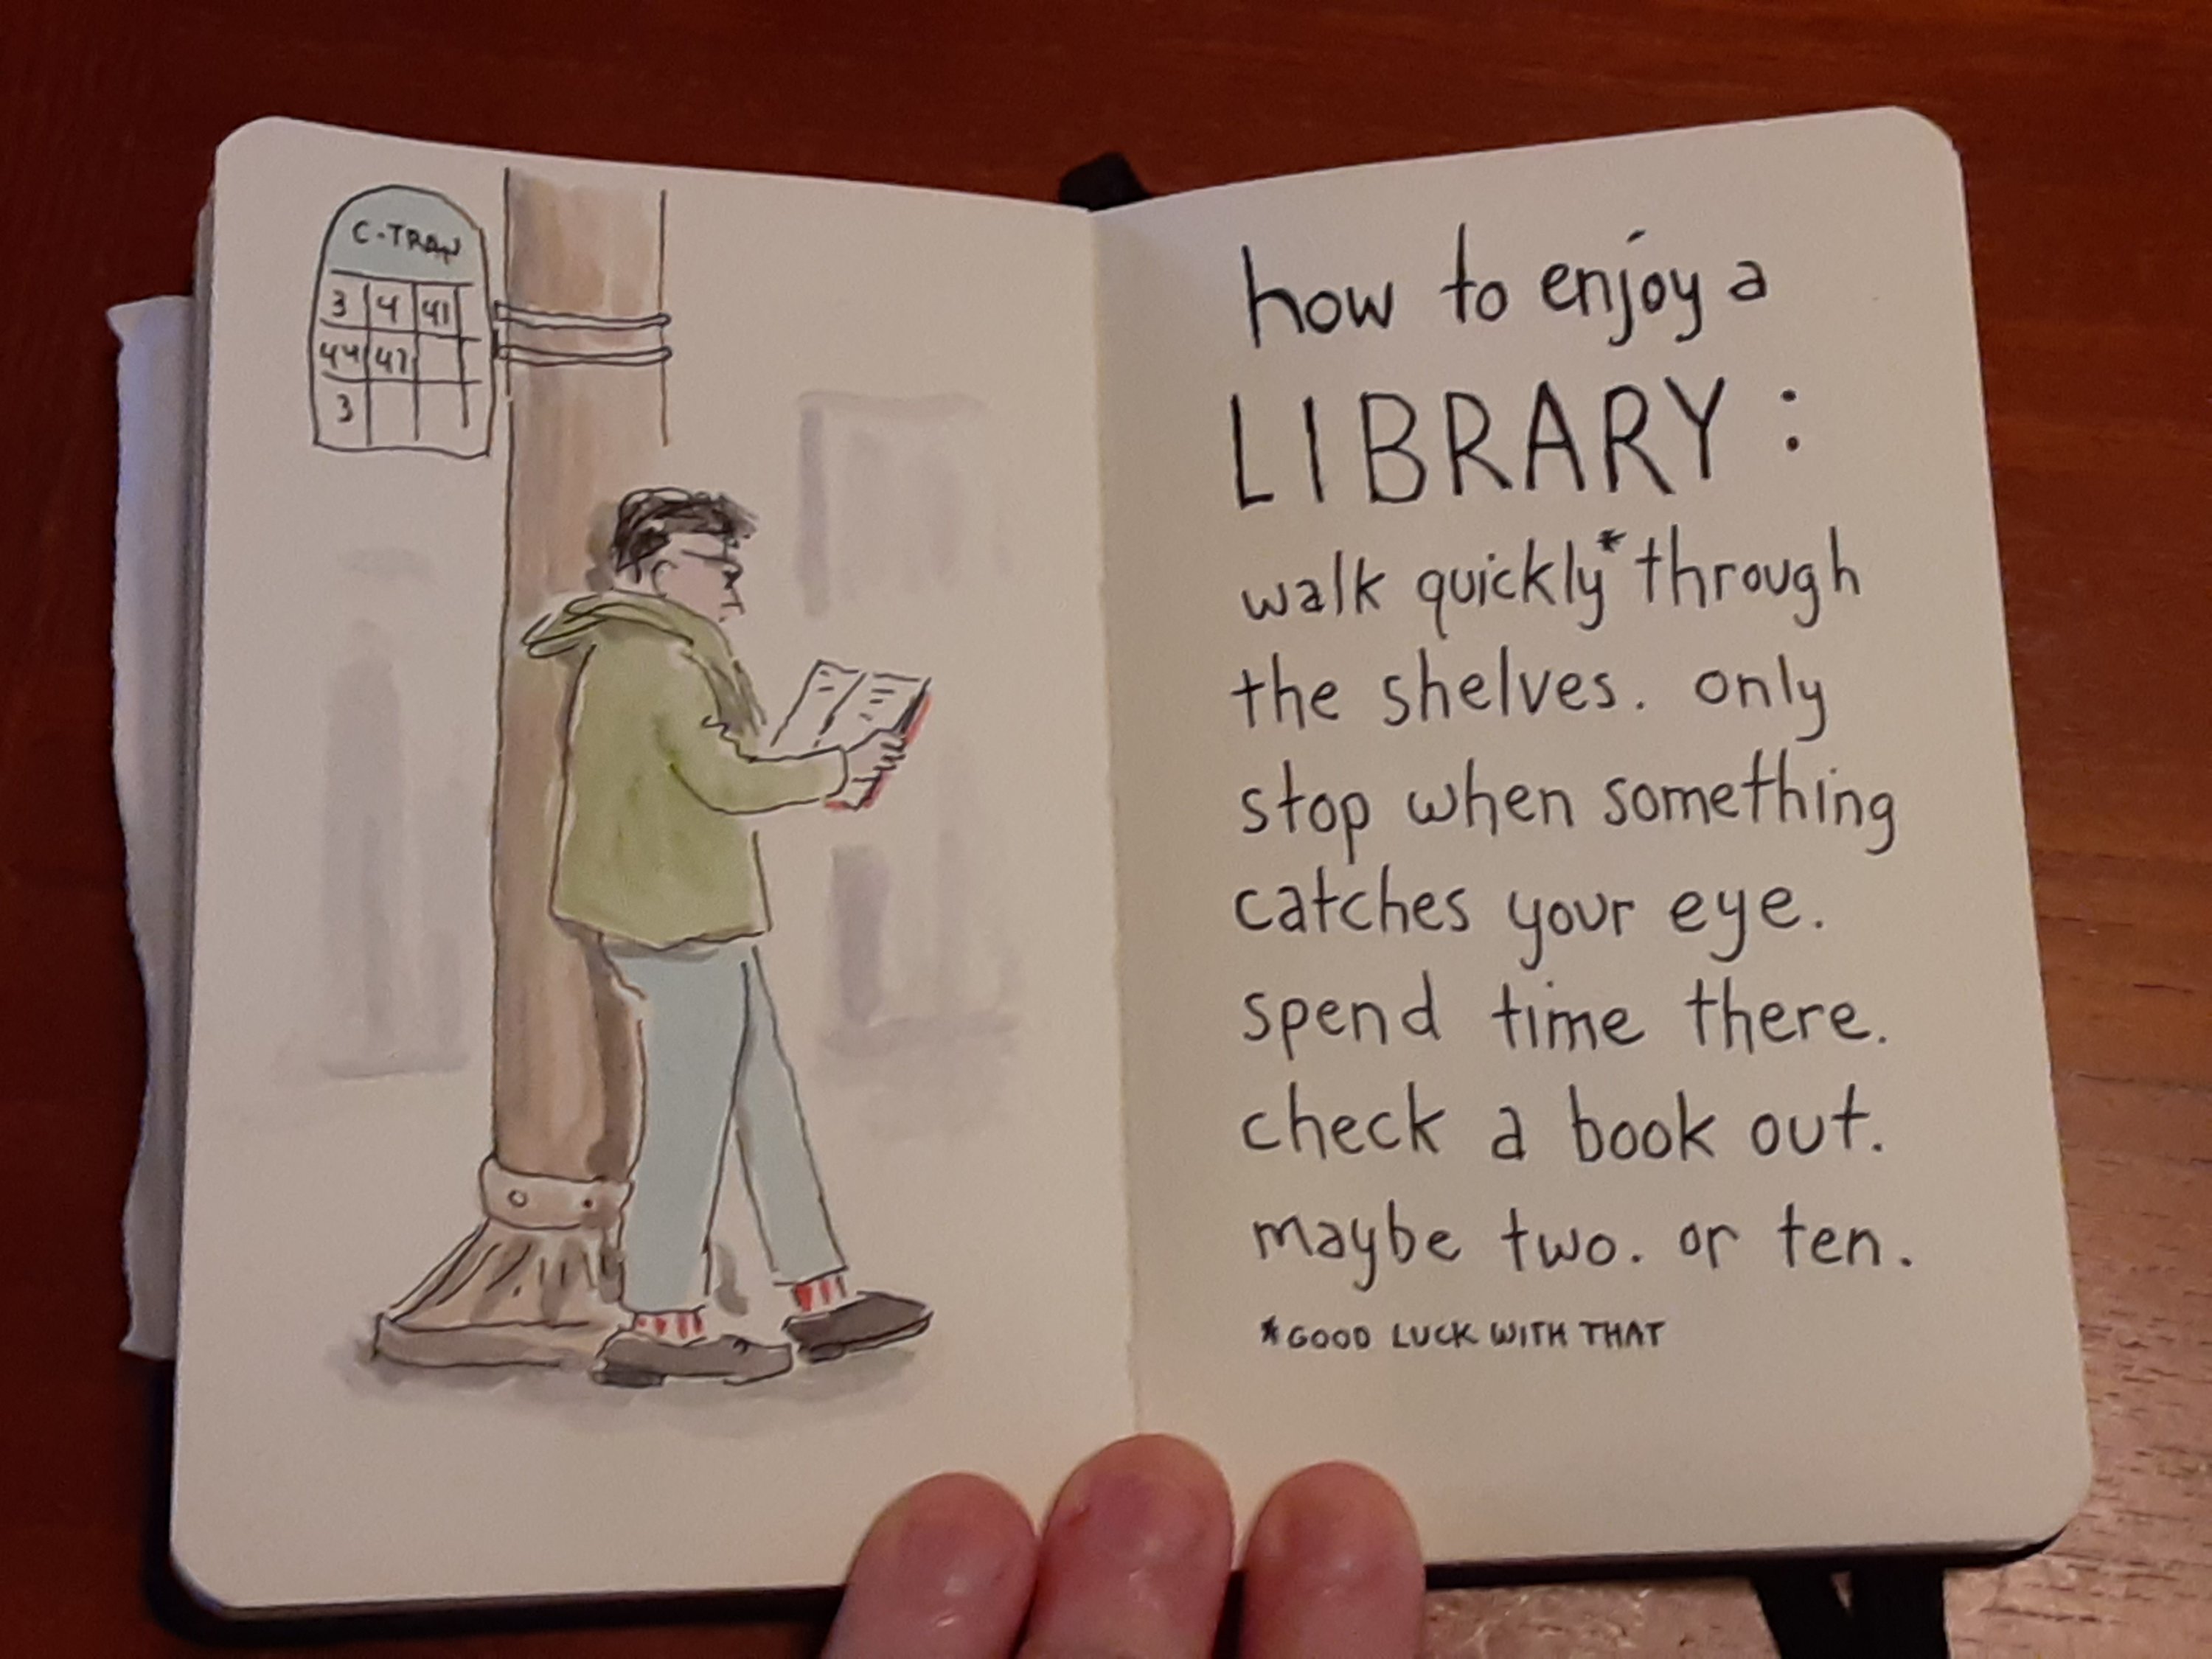 C-TRAN
3 4 41
44 47
3
how to enjoy a
LIBRARY:
walk quickly* through
the shelves. only
stop when something
catches your eye.
spend time there.
check a book out.
maybe two. or ten.
*GOOD LUCK WITH THAT